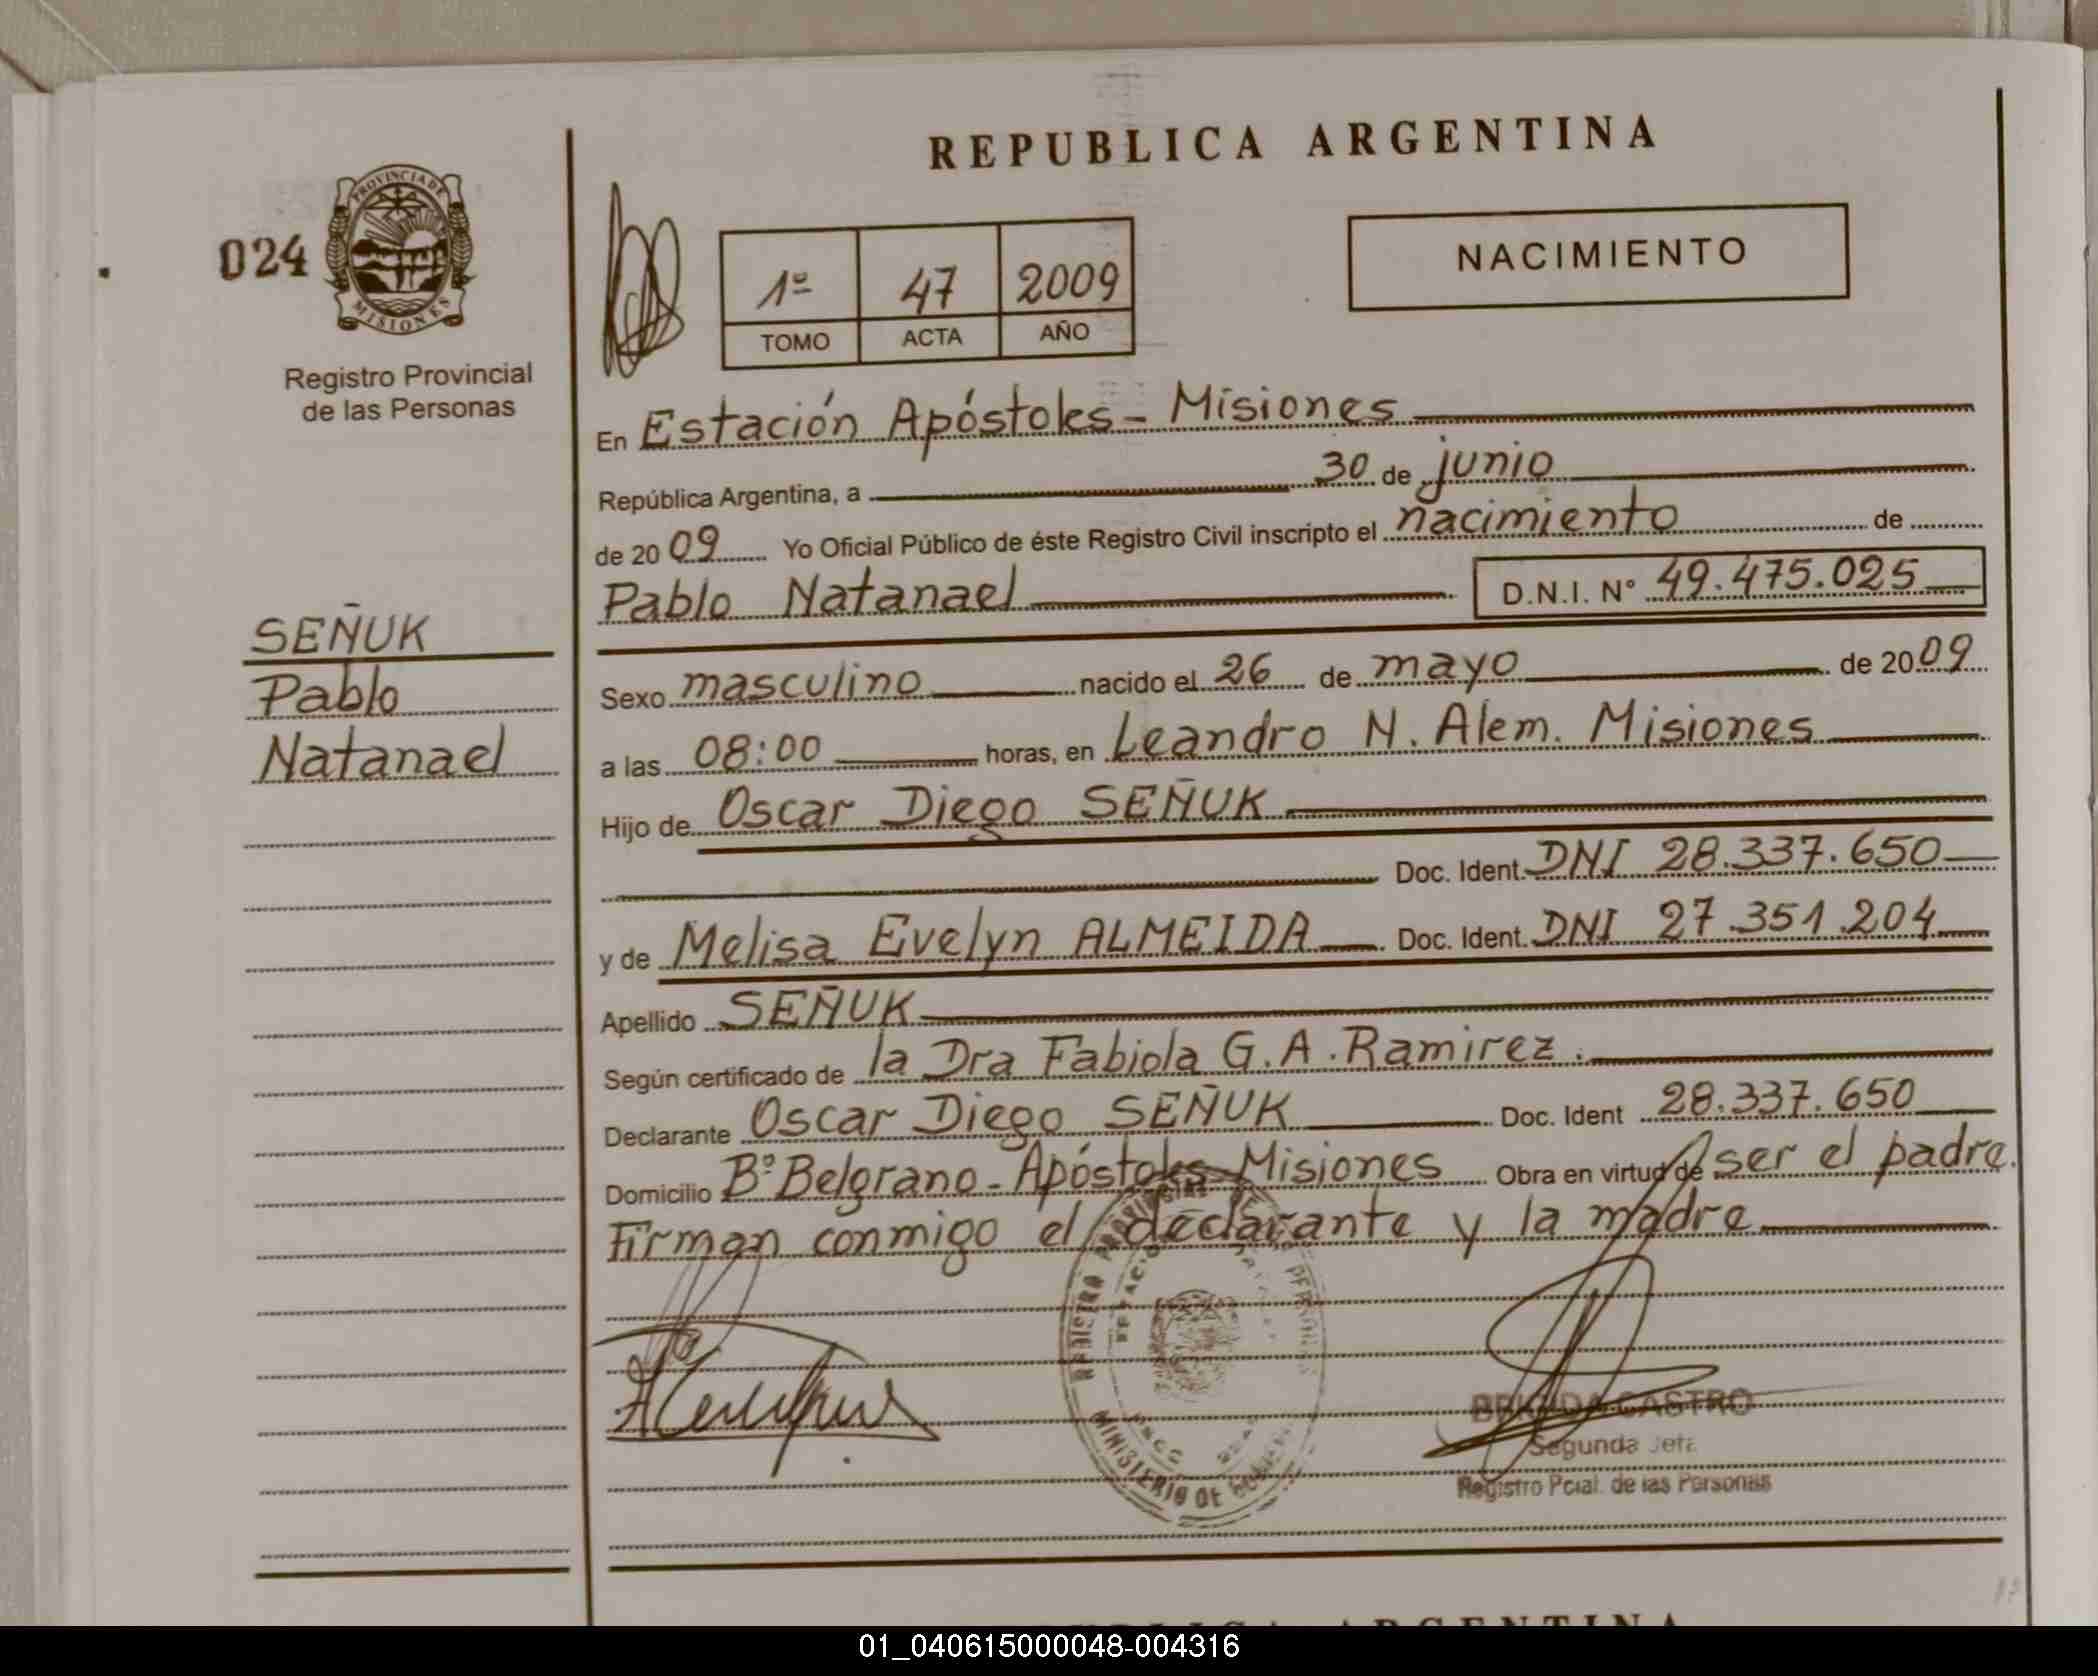 REPUBLICA ARGENTINA
024
PROVINCIA DE
MISIONES
Registro Provincial
de las Personas
1º 47 2009
TOMO ACTA AÑO
NACIMIENTO
En Estación Apóstoles - Misiones
República Argentina, a 30 de junio
de 2009 Yo Oficial Público de éste Registro Civil inscripto el nacimiento de
Pablo Natanael D.N.I. N° 49.475.025
SEÑUK
Pablo
Natanael
Sexo masculino nacido el 26 de mayo de 2009
a las 08:00 horas, en Leandro N. Alem. Misiones
Hijo de Oscar Diego SEÑUK
Doc. Ident. DNI 28.337.650
y de Melisa Evelyn ALMEIDA Doc. Ident. DNI 27.351.204
Apellido SEÑUK
Según certificado de la Dra Fabiola G. A. Ramirez.
Declarante Oscar Diego SEÑUK Doc. Ident 28.337.650
Domicilio Bº Belgrano - Apóstoles - Misiones Obra en virtud de ser el padre.
Firman conmigo el declarante y la madre
MINISTERIO DE
BRIGIDA CASTRO
Segunda Jefa
Registro Pcial. de las Personas
01_040615000048-004316